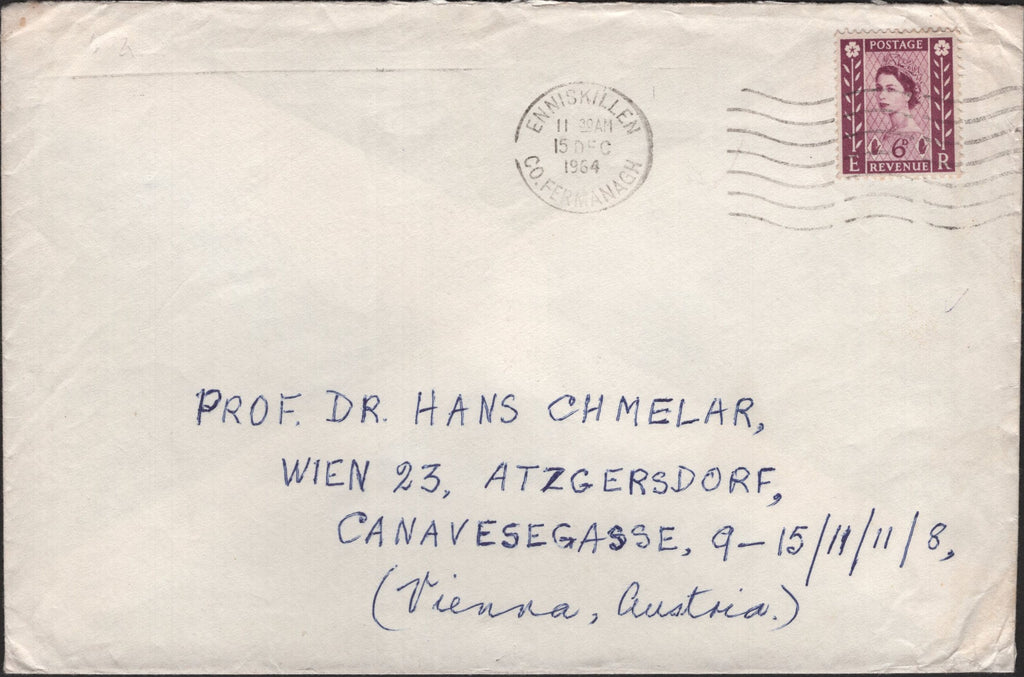 ENNISKILLEN
11 30AM
15 DEC
1964
CO. FERMANAGH
POSTAGE
6D
E R
REVENUE
PROF. DR. HANS CHMELAR,
WIEN 23, ATZGERSDORF,
CANAVESEGASSE, 9-15/11/11/8,
(Vienna, Austria.)